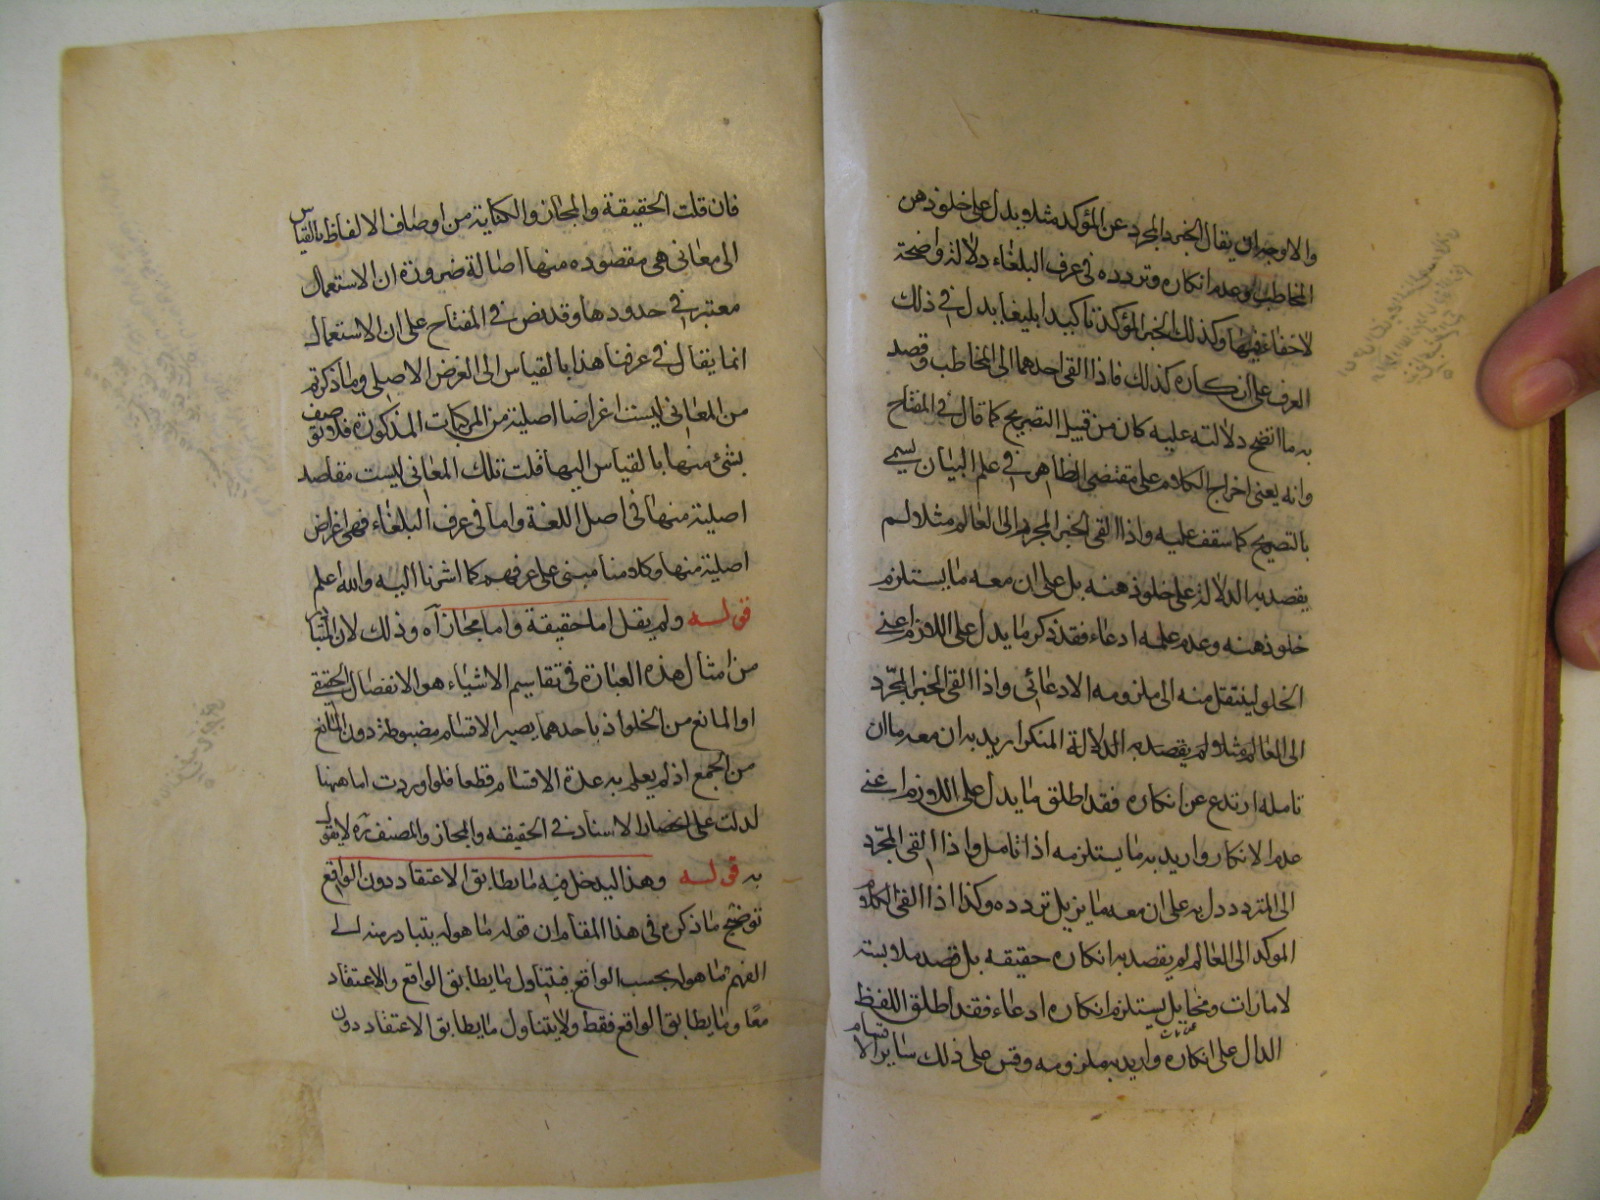 والاوجه ان يقال الخبر المجرد عن المؤكد مثلا يدل على خلو ذهن
المخاطب وعدم انكاره وتردده في عرف البلغاء دلالة واضحة
لاخفاء فيها وكذلك الخبر المؤكد تاكيدا بليغا يدل في ذلك
العرف على انكاره كذلك فاذا القى احدهما الى المخاطب وقصد
به ما اتضح دلالته عليه كان من قبيل التصريح كما قال في المفتاح
وانه يعنى اخراج الكلام على مقتضى الظاهر في علم البيان يسمى
بالتصريح كما ستقف عليه واذا القى الخبر المجرد الى العالم مثلا لم
يقصد به الدلالة على خلو ذهنه بل على ان معه ما يستلزم
خلو ذهنه وعدم علمه ادعاء فقد ذكر ما يدل على اللازم اعنى
الخلو لينتقل منه الى ملزومه الادعائى واذا القى الخبر المجرّد
الى العالم مثلا ولم يقصد به الدلالة المنكر اريد به ان معه ما ان
تامله ارتدع عن انكاره فقد اطلق ما يدل على اللازم اعنى
عدم الانكار واريد به ما يستلزمه اذا تامل واذا القى المجرّد
الى المتردد دل به على ان معه ما يزيل تردده وكذا اذا القى الكلام
الموكد الى العالم لم يقصد به انكاره حقيقه بل قصد ملابسته
لامارات ومخايل يستلزم انكاره ادعاء فقد اطلق اللفظ
الدال على انكاره واريد به ملزومه وقس على ذلك ساير الاقسام
فان قلت الحقيقة والمجاز والكناية من اوصاف الالفاظ بالقياس
الى معانى هى مقصوده منها اصالة ضرورة ان الاستعمال
معتبر في حدودها وقد نص في المفتاح على ان الاستعمال
انما يقال في عرفنا هذا بالقياس الى الغرض الاصلى وما ذكرتم
من المعانى ليست اغراضا اصلية من المركبات المذكورة فلا توصف
بشئ منها بالقياس اليها قلت تلك المعانى ليست مقاصد
اصلية منها في اصل اللغة واما في عرف البلغاء فهى اغراض
اصلية منها وكلامنا مبنى على عرفهم كما اشرنا اليه والله اعلم
قوله ولم يقل اما حقيقة واما مجاز اه وذلك لان المتبادر
من امثال هذه العبارة في تقاسيم الاشياء هو الانفصال الحقيقى
او المانع من الخلو اذ باحدهما يصير الاقسام مضبوطة دون المانع
من الجمع اذ لم يعلم به عدة الاقسام قطعا فلو اوردت اما ههنا
لدلت على انحصار الاسناد في الحقيقه والمجاز والمصنف ره لا يقول
به قوله وهذا ليدخل فيه ما يطابق الاعتقاد دون الواقع
توضيح ما ذكره في هذا المقام ان قوله ما هو له يتبادر منه الى
الفهم ما هو له بحسب الواقع فيتناول ما يطابق الواقع والاعتقاد
معًا وما يطابق الواقع فقط ولا يتناول ما يطابق الاعتقاد دون